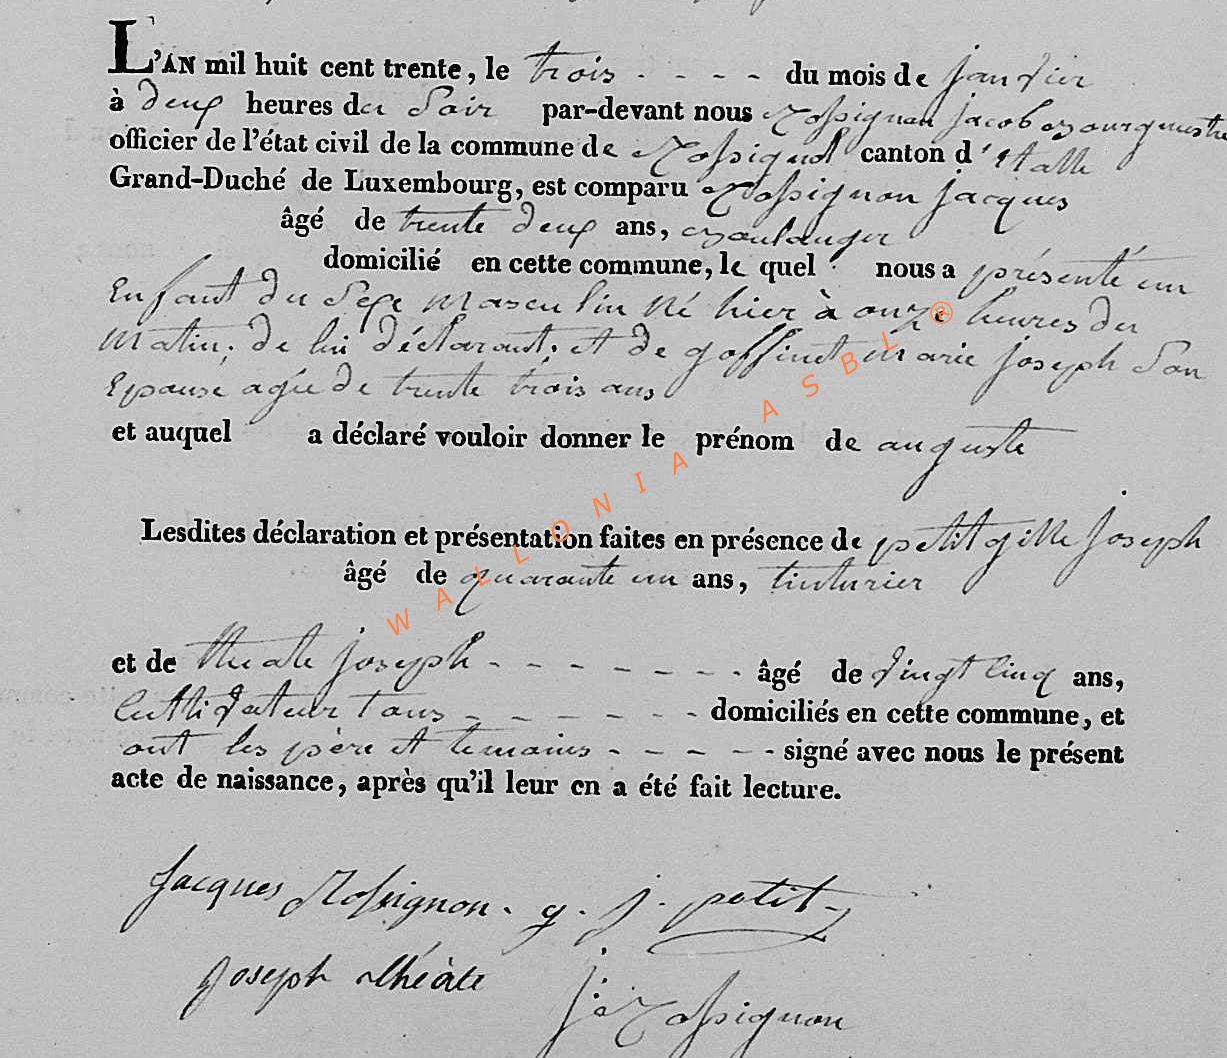 L'AN mil huit cent trente, le trois - - - - du mois de janvier
à deux heures du Soir par-devant nous Rossignon jacob Bourguestre
officier de l'état civil de la commune de Rossignol canton d'Etalle
Grand-Duché de Luxembourg, est comparu Rossignon jacques
âgé de trente deux ans, Boulanger
domicilié en cette commune, le quel nous a présenté un
Enfant du Sexe Masculin Né hier à onze heures du
Matin, de lui déclarant, et de goffinet Marie joseph Son
Epouse agée de trente trois ans
et auquel a déclaré vouloir donner le prénom de auguste
Lesdites déclaration et présentation faites en présence de petit gille joseph
âgé de quarante un ans, tinturier
et de theate joseph - - - - - - - - âgé de vingt cinq ans,
cultivateur tous - - - - - - - domiciliés en cette commune, et
ont les père et temoins - - - - - signé avec nous le présent
acte de naissance, après qu'il leur en a été fait lecture.
Jacques Rossignon. g. j. petit
joseph théàte
j: Rossignon
WALLONIA ASBL ®